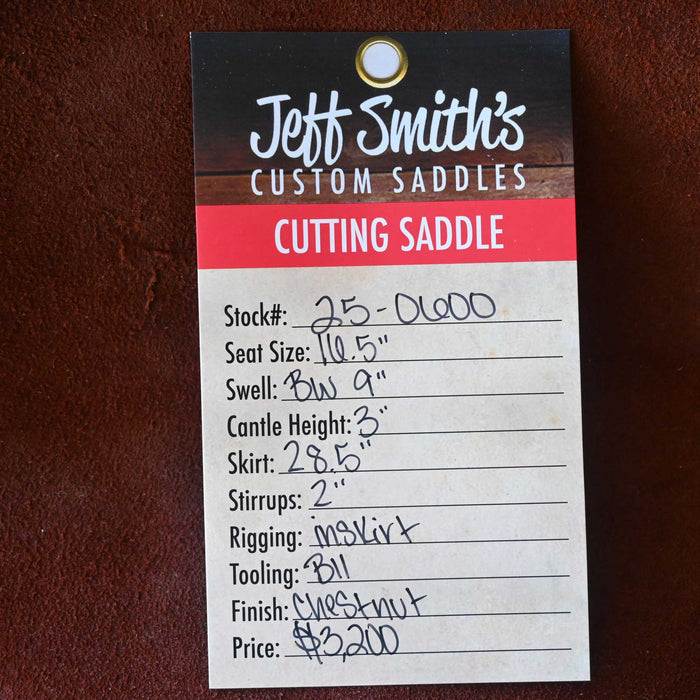 Jeff Smith's
CUSTOM SADDLES
CUTTING SADDLE
Stock#: 25-0600
Seat Size: 16.5"
Swell: BW 9"
Cantle Height: 3"
Skirt: 28.5"
Stirrups: 2"
Rigging: inskirt
Tooling: B11
Finish: Chestnut
Price: $3,200